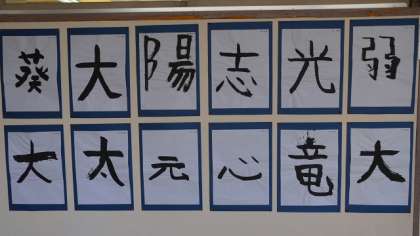 葵 大 陽 志 光 弱
大 太 元 心 竜 大